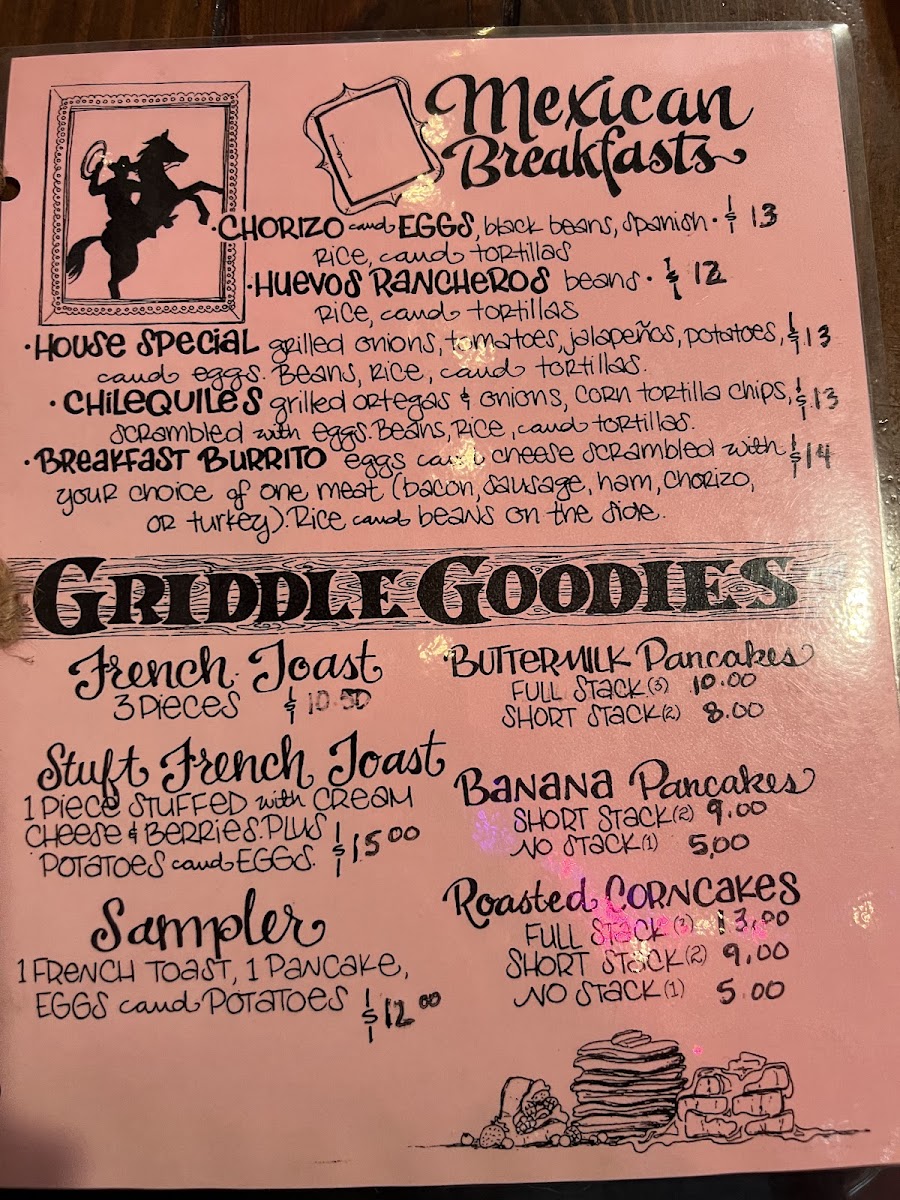 Mexican
Breakfasts
• CHORIZO and EGGS, black beans, Spanish • $ 13
Rice, and tortillas
• HUEVOS RANCHEROS beans • $ 12
Rice, and tortillas
• HOUSE SPECIAL grilled onions, tomatoes, jalapeños, potatoes, $13
and eggs. Beans, Rice, and tortillas.
• CHILEQUILES grilled ortegas & onions, corn tortilla chips, $13
scrambled with eggs. Beans, Rice, and tortillas.
• BREAKFAST BURRITO eggs and cheese scrambled with $14
your choice of one meat (bacon, sausage, ham, chorizo,
or turkey). Rice and beans on the side.
GRIDDLE GOODIES
French Toast
3 Pieces $ 10.50
Stuft French Toast
1 Piece STUFFED with CREAM
CHEESE & BERRIES. PLUS $15.00
POTATOES and EGGS.
Sampler
1 FRENCH TOAST, 1 PANCAKE,
EGGS and POTATOES $12.00
BUTTERMILK Pancakes
FULL STACK (3) 10.00
SHORT STACK (2) 8.00
BANANA Pancakes
SHORT STACK (2) 9.00
NO STACK (1) 5,00
Roasted CORNCAKES
FULL STACK (3) 13,00
SHORT STACK (2) 9,00
NO STACK (1) 5.00